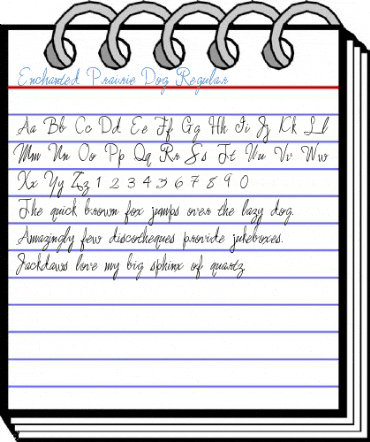 Enchanted Prairie Dog Regular
Aa Bb Cc Dd Ee Ff Gg Hh Ii Jj Kk Ll
Mm Nn Oo Pp Qq Rr Ss Tt Uu Vv Ww
Xx Yy Zz 1 2 3 4 5 6 7 8 9 0
The quick brown fox jumps over the lazy dog.
Amazingly few discotheques provide jukeboxes.
Jackdaws love my big sphinx of quartz.